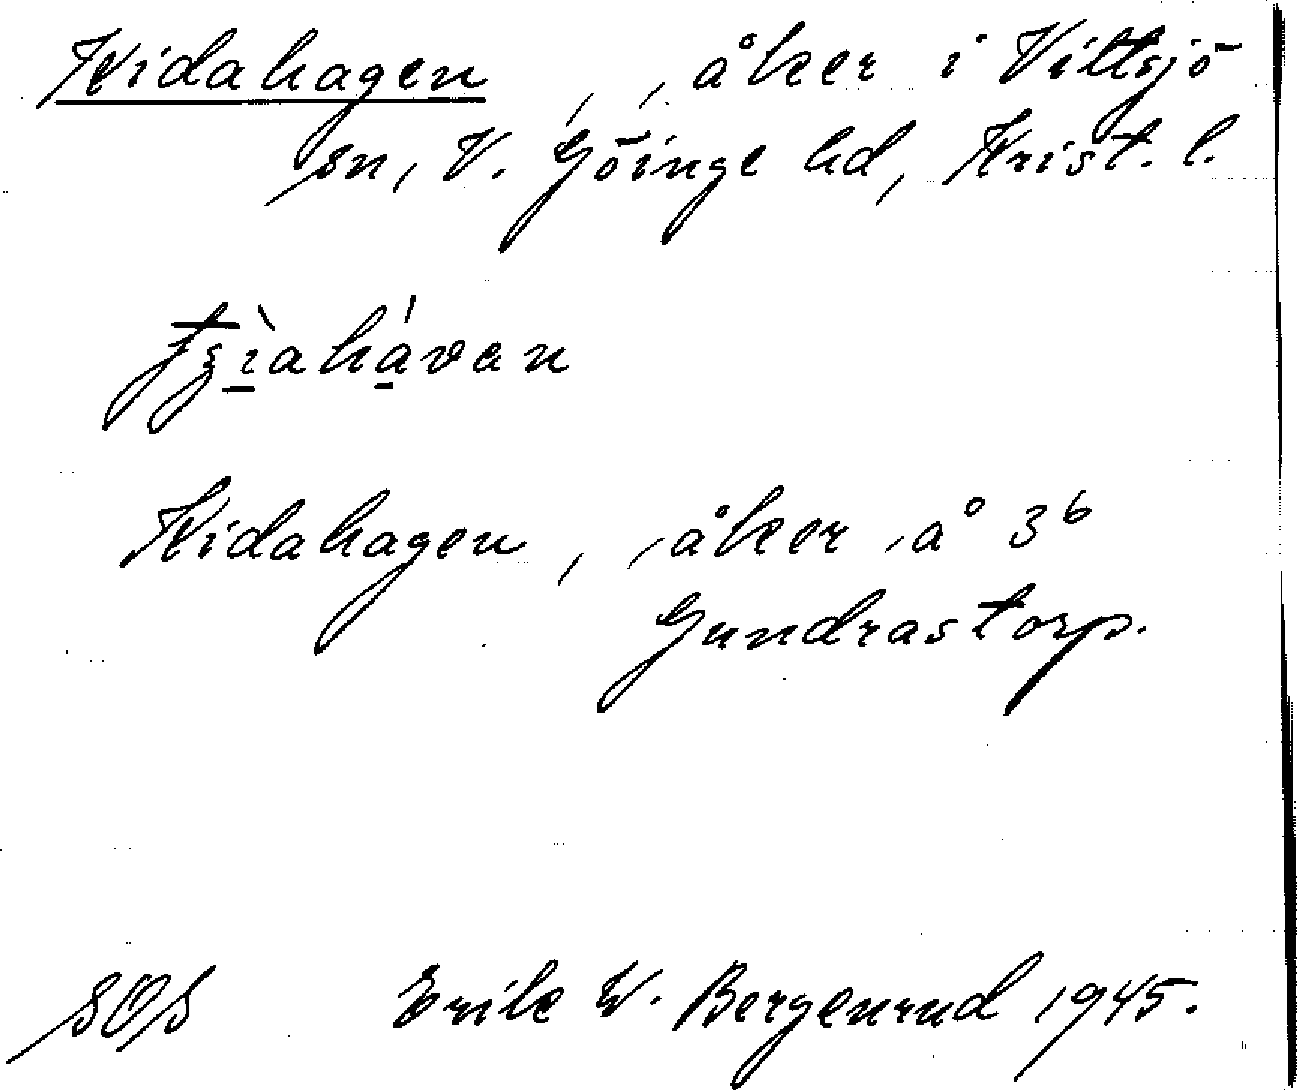 Kidahagen , , åker i Vittsjö
sn, V. Göinge hd, Krist. l.
Kidahagen, , åker å 3⁶
Gundrastorp.
SOS Erik W. Bergenrud 1945.